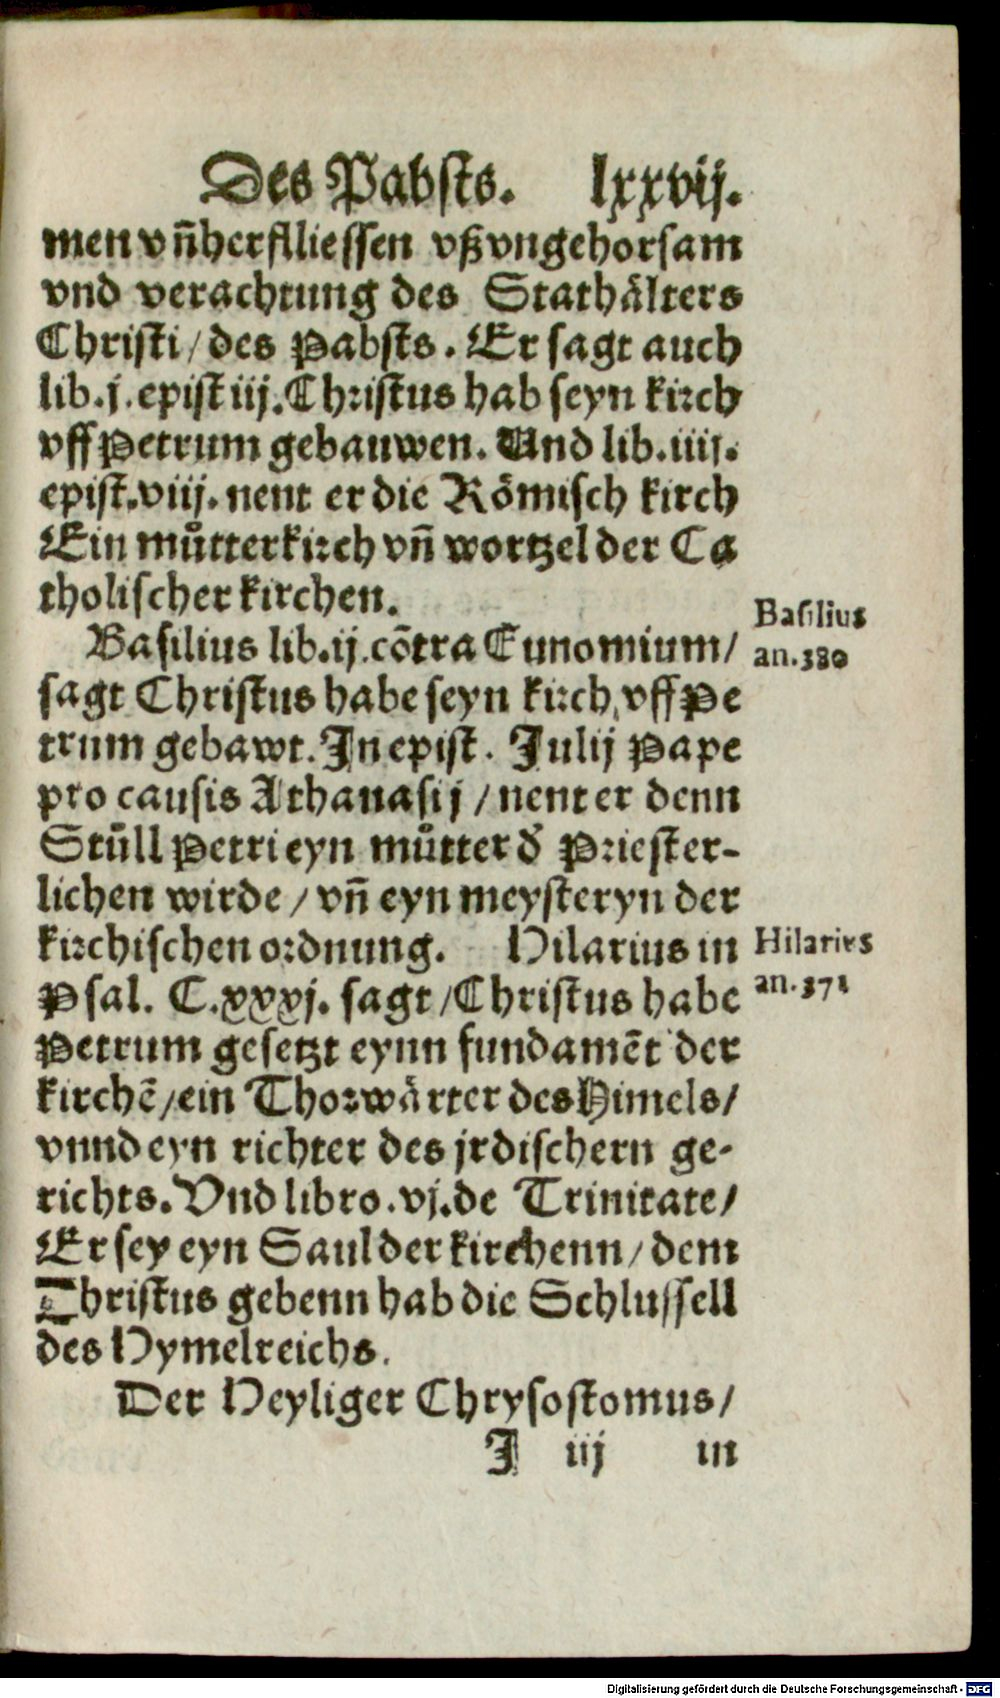 Des Pabsts. lxxvij.
men vn̄ herflliessen vß vngehorsam
vnd verachtung des Stathälters
Christi / des Pabsts. Er sagt auch
lib. j. epist iij. Christus hab seyn kirch
vff Petrum gebauwen. Und lib. iiij.
epist. viij. nent er die Römisch kirch
Ein můtterkirch vn̄ wortzel der Ca
tholischer kirchen.
Basilius lib. ij. cōtra Eunomium /
Basilius
an. 380
sagt Christus habe seyn kirch, vff Pe
trum gebawt. In epist. Julij Pape
pro causis Athanasij / nent er denn
Stůll Petri eyn můtter d' Priester-
lichen wirde / vn̄ eyn meysteryn der
kirchischen ordnung. Hilarius in
Hilarius
an. 371
Psal. C.xxxj. sagt / Christus habe
Petrum gesetzt eynn fundamēt der
kirchē / ein Thorwärter des Himels /
vnnd eyn richter des jrdischern ge-
richts. Vnd libro. vj. de Trinitate /
Er sey eyn Saul der kirchenn / dem
Christus gebenn hab die Schlussell
des Hymelreichs.
Der Heyliger Chrysostomus /
J iij in
Digitalisierung gefördert durch die Deutsche Forschungsgemeinschaft - DFG